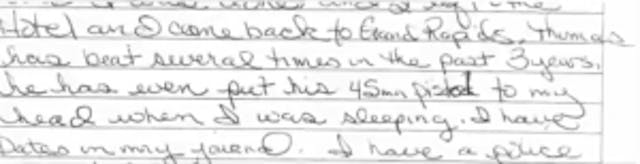 Hotel and I came back to Grand Rapids. Thomas
has beat several times in the past 3 years.
he has even put his 45mm pistol to my
head when I was sleeping. I have
Dates in my journal. I have a police